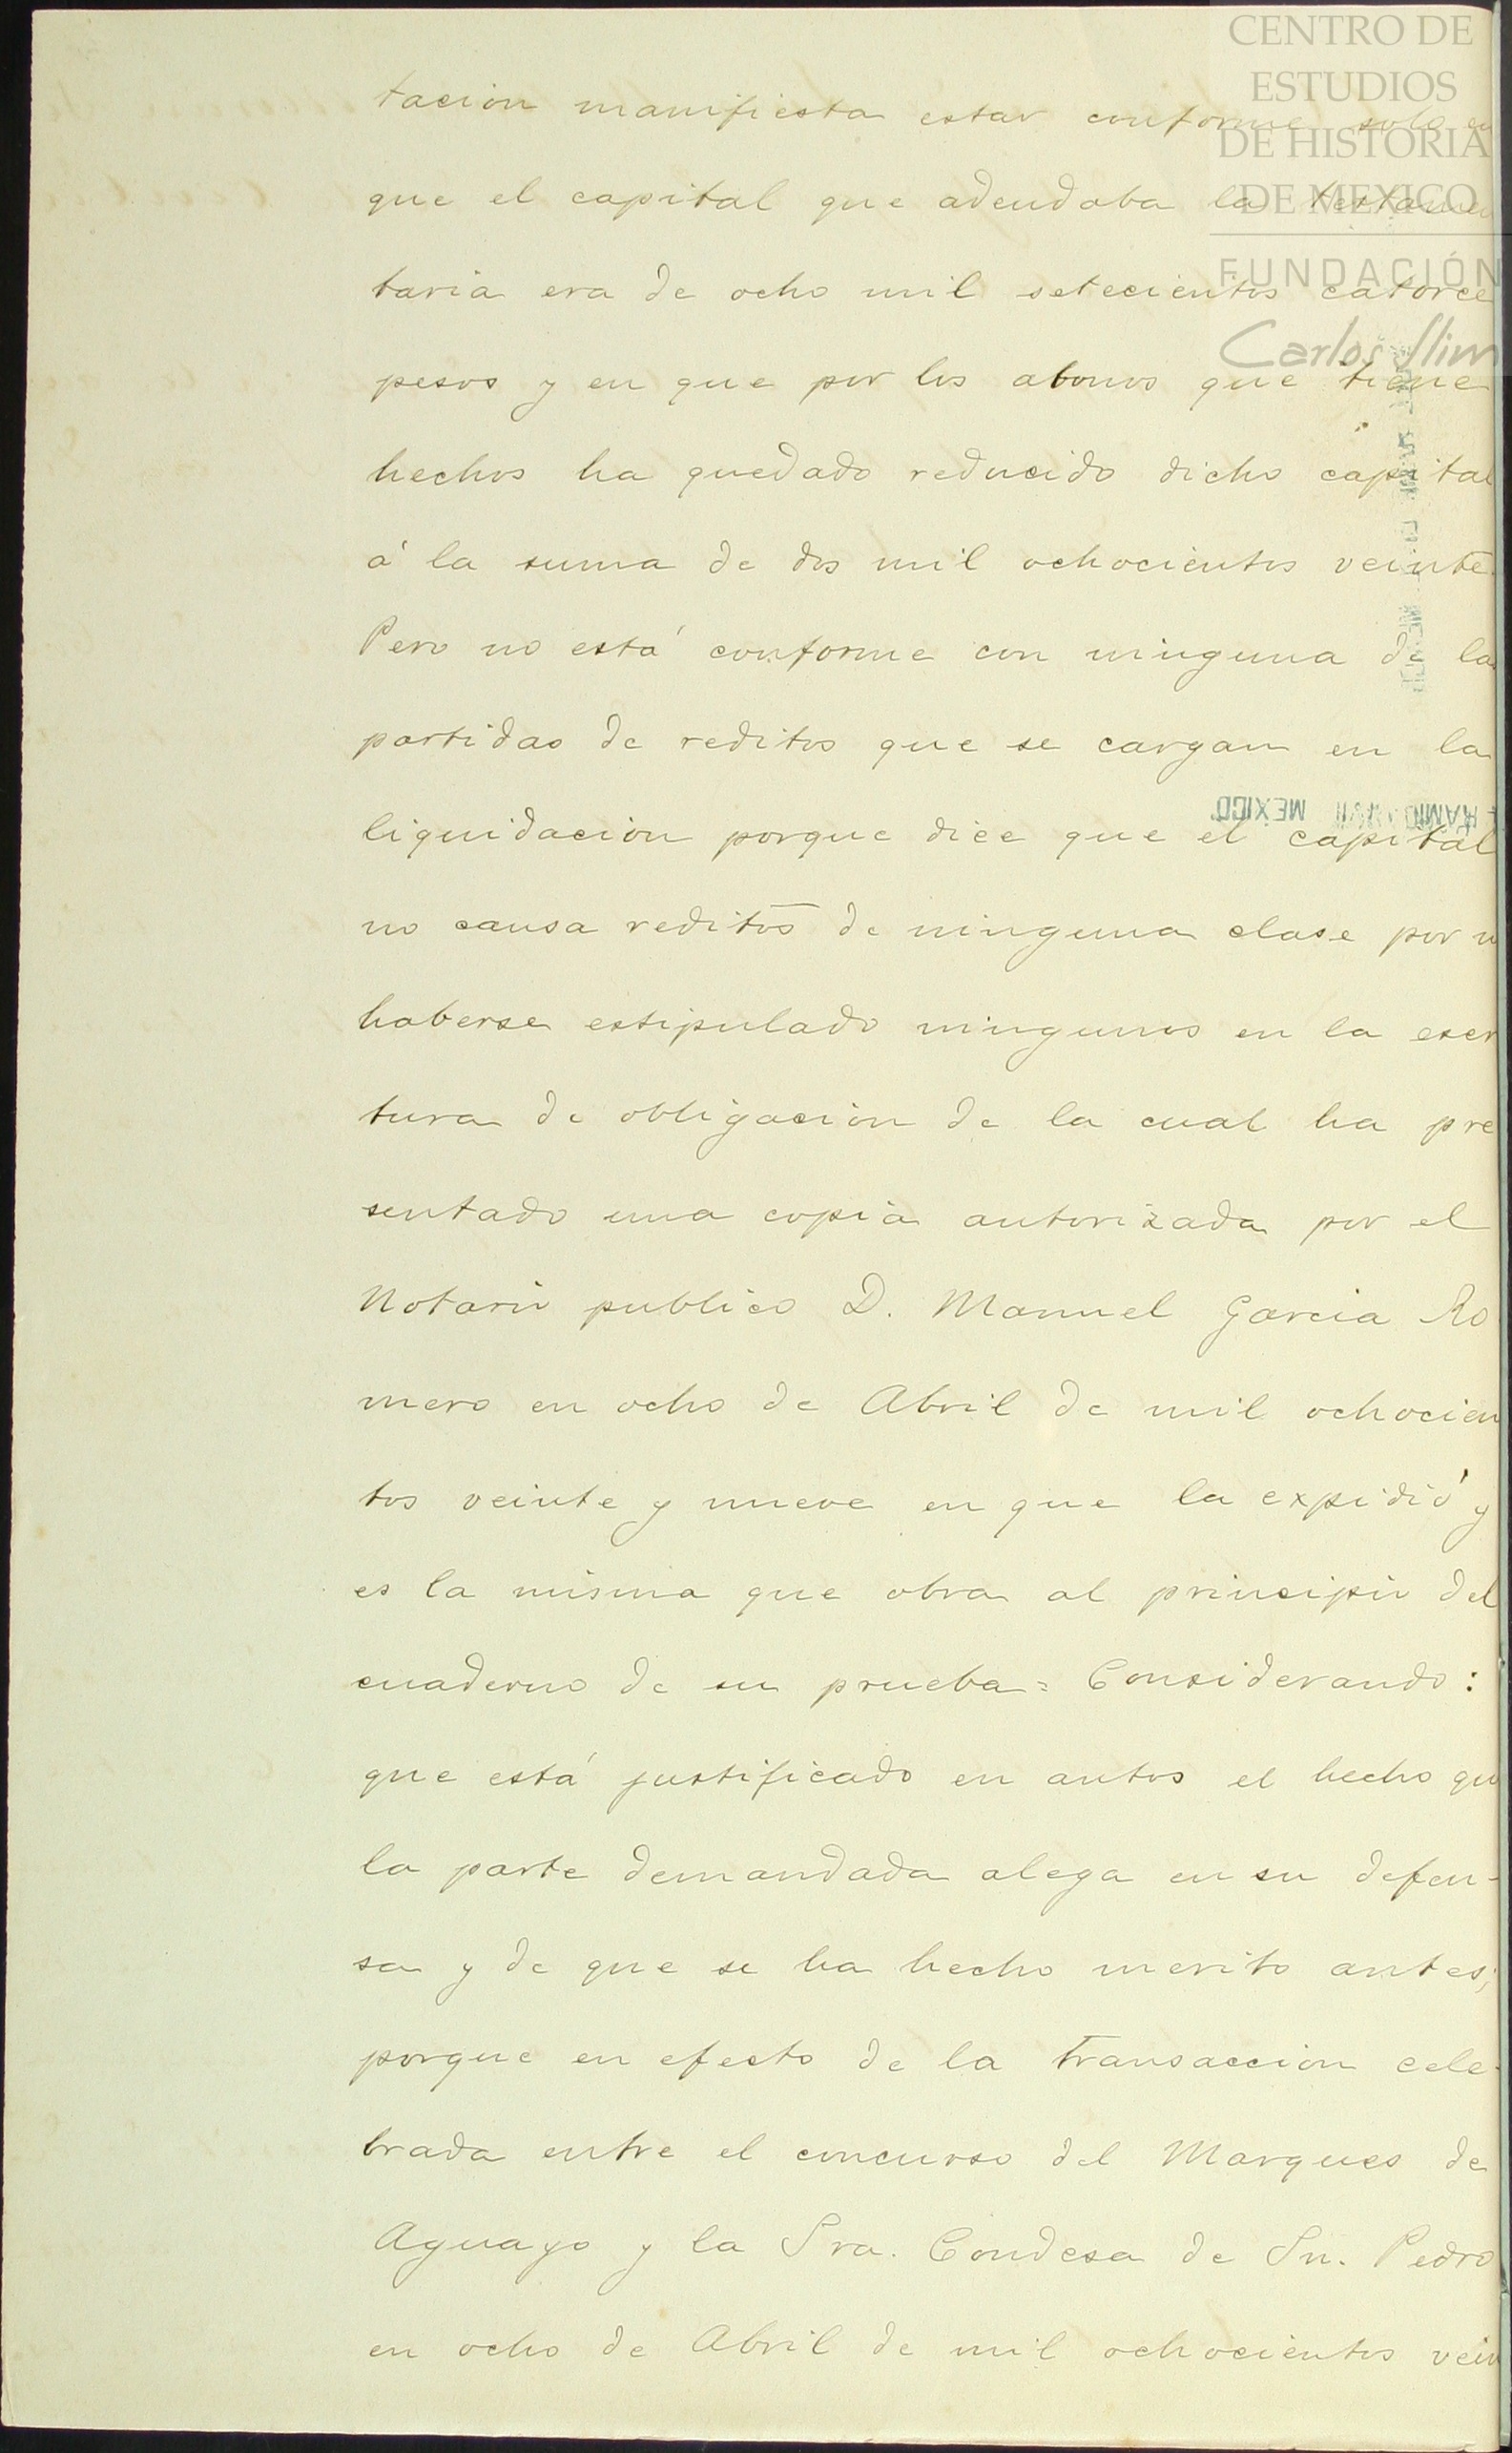 CENTRO DE
ESTUDIOS
DE HISTORIA
DE MEXICO
FUNDACIÓN
Carlos Slim
tacion manifiesta estar conforme solo en
que el capital que adeudaba la testamen
taria era de ocho mil setecientos catorce
pesos y en que por los abonos que tiene
hechos ha quedado reducido dicho capital
á la suma de dos mil ochocientos veinte.
Pero no está conforme con ninguna de la
partidas de reditos que se cargan en la
liquidacion porque dice que el capital
no causa reditos de ninguna clase por n
haberse estipulado ningunos en la escr
tura de obligacion de la cual ha pre
sentado una copia autorizada por el
Notario publico D. Manuel Garcia Ro
mero en ocho de Abril de mil ochocien
tos veinte y nueve en que la expidió y
es la misma que obra al principio del
cuaderno de su prueba = Considerando:
que está justificado en autos el hecho qu
la parte demandada alega en su defen-
sa y de que se ha hecho merito antes;
porque en efecto de la transaccion cele-
brada entre el concurso del Marques de
Aguayo y la Sra. Condesa de Sn. Pedro
en ocho de Abril de mil ochocientos vein
MEXICO